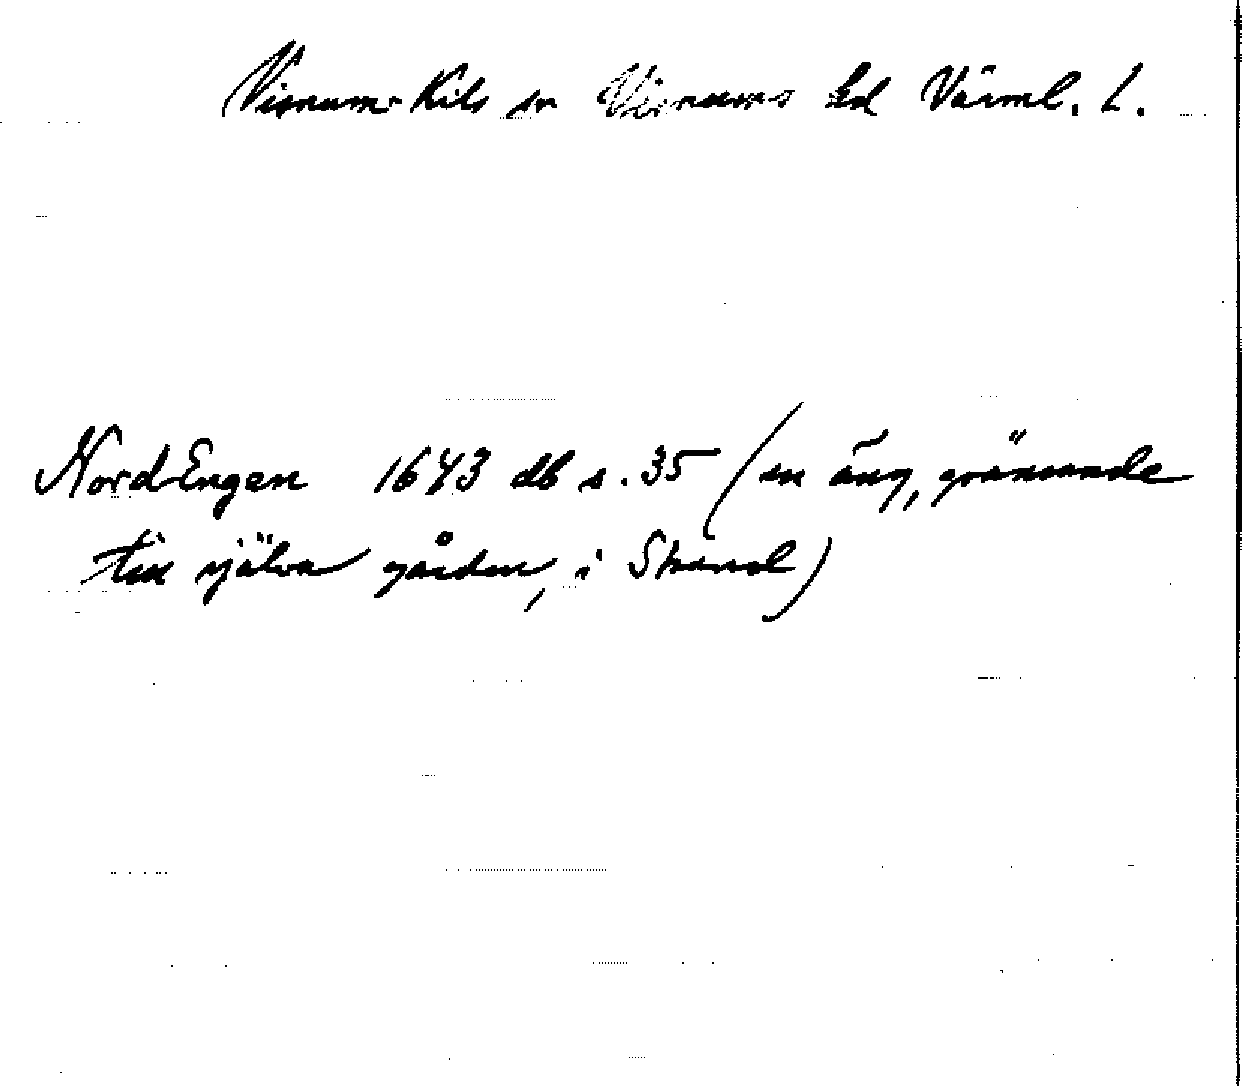 Visnum-Kils sn Visnums hd Värml. L.
Nord-Engen 1643 db s. 35 (en äng, gränsande
till själva gården, i Strand)